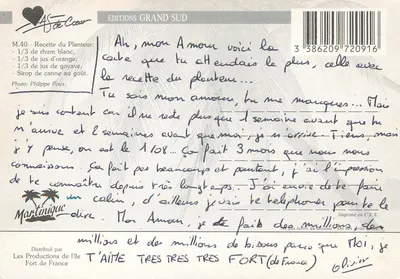 as de Cœur
EDITIONS GRAND SUD
M.40 - Recette du Planteur:
- 1/3 de rhum blanc,
- 1/3 de jus d'orange,
- 1/3 de jus de goyave,
Sirop de canne au goût.
Photo: Philippe Poux
3 386209 720916
Ah, mon Amour voici la
carte que tu attendais le plus, celle avec
la recette du planteur...
Tu sais mon amour, tu me manques... Moi
je suis content car il ne reste plus que 1 semaine avant que tu
m'arrive et 2 semaines avant que moi, je n'arrive. Tiens, mais
j'y pense, on est le 1/08. Ça fait 3 mois que nous nous
connaissons. Ça fait pas beaucoup et pourtant, j'ai l'impression
de te connaître depuis très longtemps. J'ai envie de te faire
un calin, d'ailleurs je vais te téléphoner pour te le
dire. Mon Amour, je te fais des millions, des
millions et des millions de bisous parce que MOI, je
T'AIME TRES TRES TRES FORT (de France)
Olivier
Martinique
Imprimé en C.E.E.
Distribué par
Les Productions de l'Ile
Fort de France